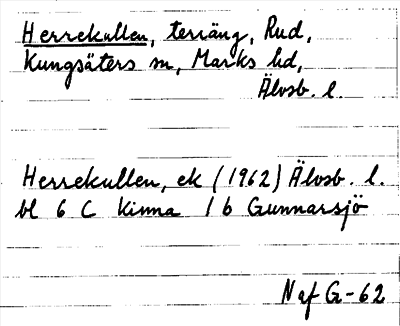 Herrekullen, terräng, Rud,
Kungsäters sn, Marks hd,
Älvsb. l.
Herrekullen, ek (1962) Älvsb. l.
bl 6 C Kinna 1 b Gunnarsjö
N af G-62